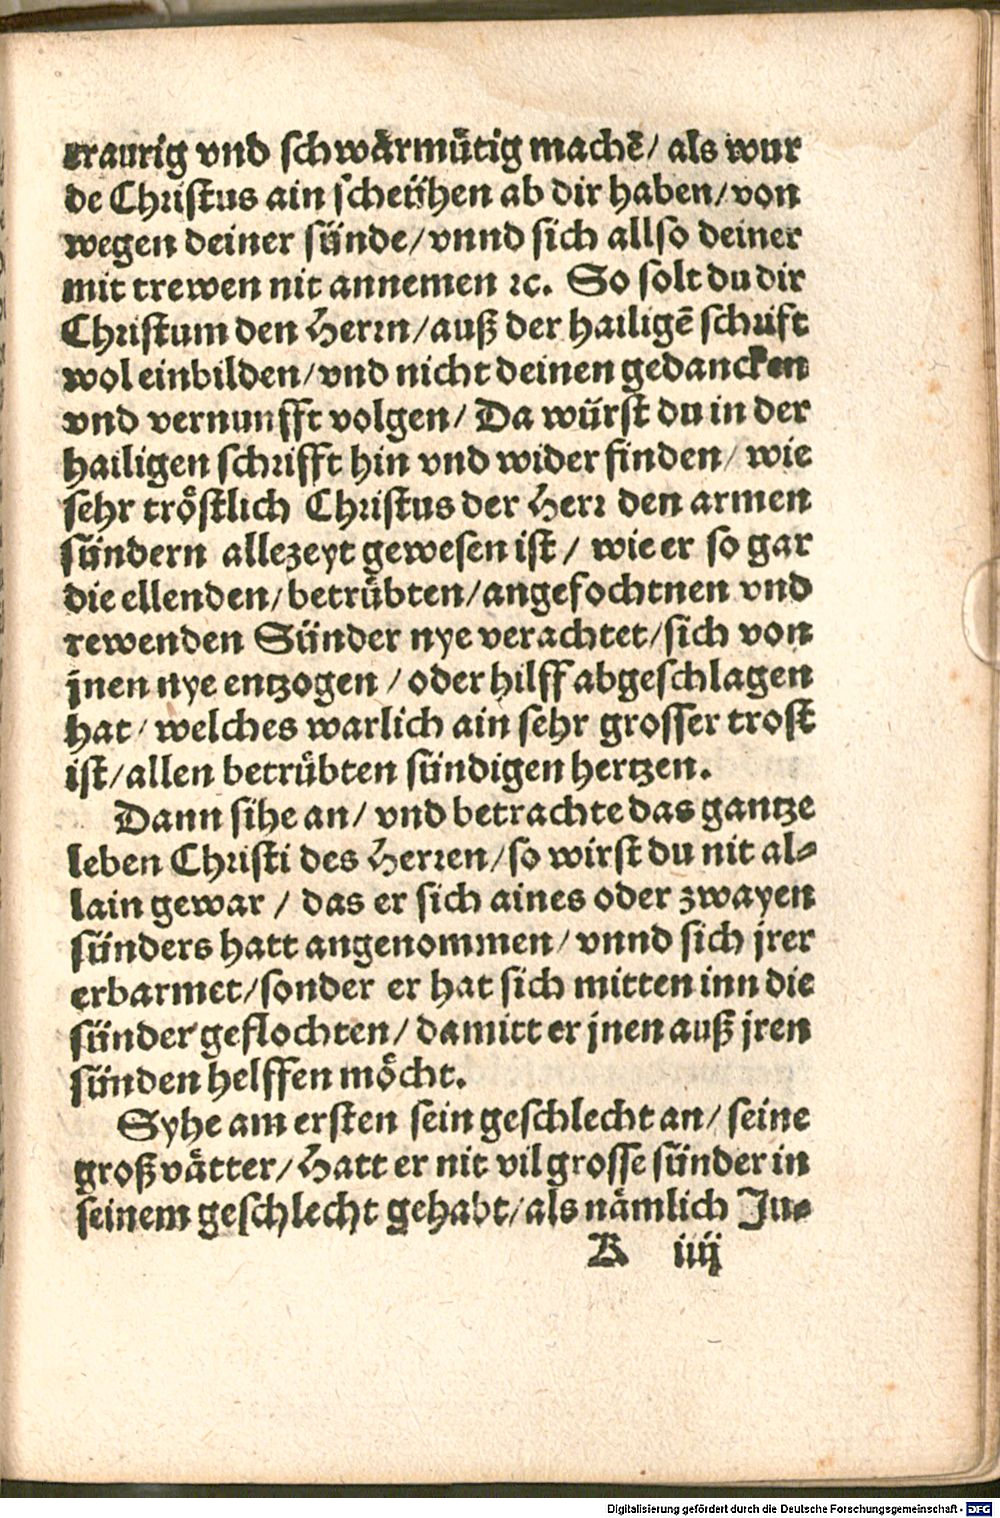 traurig vnd schwärmütig machē / als wur
de Christus ain scheühen ab dir haben / von
wegen deiner sünde / vnnd sich allso deiner
mit trewen nit annemen ꝛc. So solt du dir
Christum den Herrn / auß der hailigē schrift
wol einbilden / vnd nicht deinen gedancken
vnd vernunfft volgen / Da würst du in der
hailigen schrifft hin vnd wider finden / wie
sehr tröstlich Christus der Herr den armen
sündern allezeyt gewesen ist / wie er so gar
die ellenden / betrübten / angefochtnen vnd
rewenden Sünder nye verachtet / sich von
jnen nye entzogen / oder hilff abgeschlagen
hat / welches warlich ain sehr grosser trost
ist / allen betrübten sündigen hertzen.
Dann sihe an / vnd betrachte das gantze
leben Christi des Herren / so wirst du nit al-
lain gewar / das er sich aines oder zwayen
sünders hatt angenommen / vnnd sich jrer
erbarmet / sonder er hat sich mitten inn die
sünder geflochten / damitt er jnen auß jren
sünden helffen möcht.
Syhe am ersten sein geschlecht an / seine
großvätter / Hatt er nit vil grosse sünder in
seinem geschlecht gehabt / als nämlich Ju-
B iiij
Digitalisierung gefördert durch die Deutsche Forschungsgemeinschaft - DFG